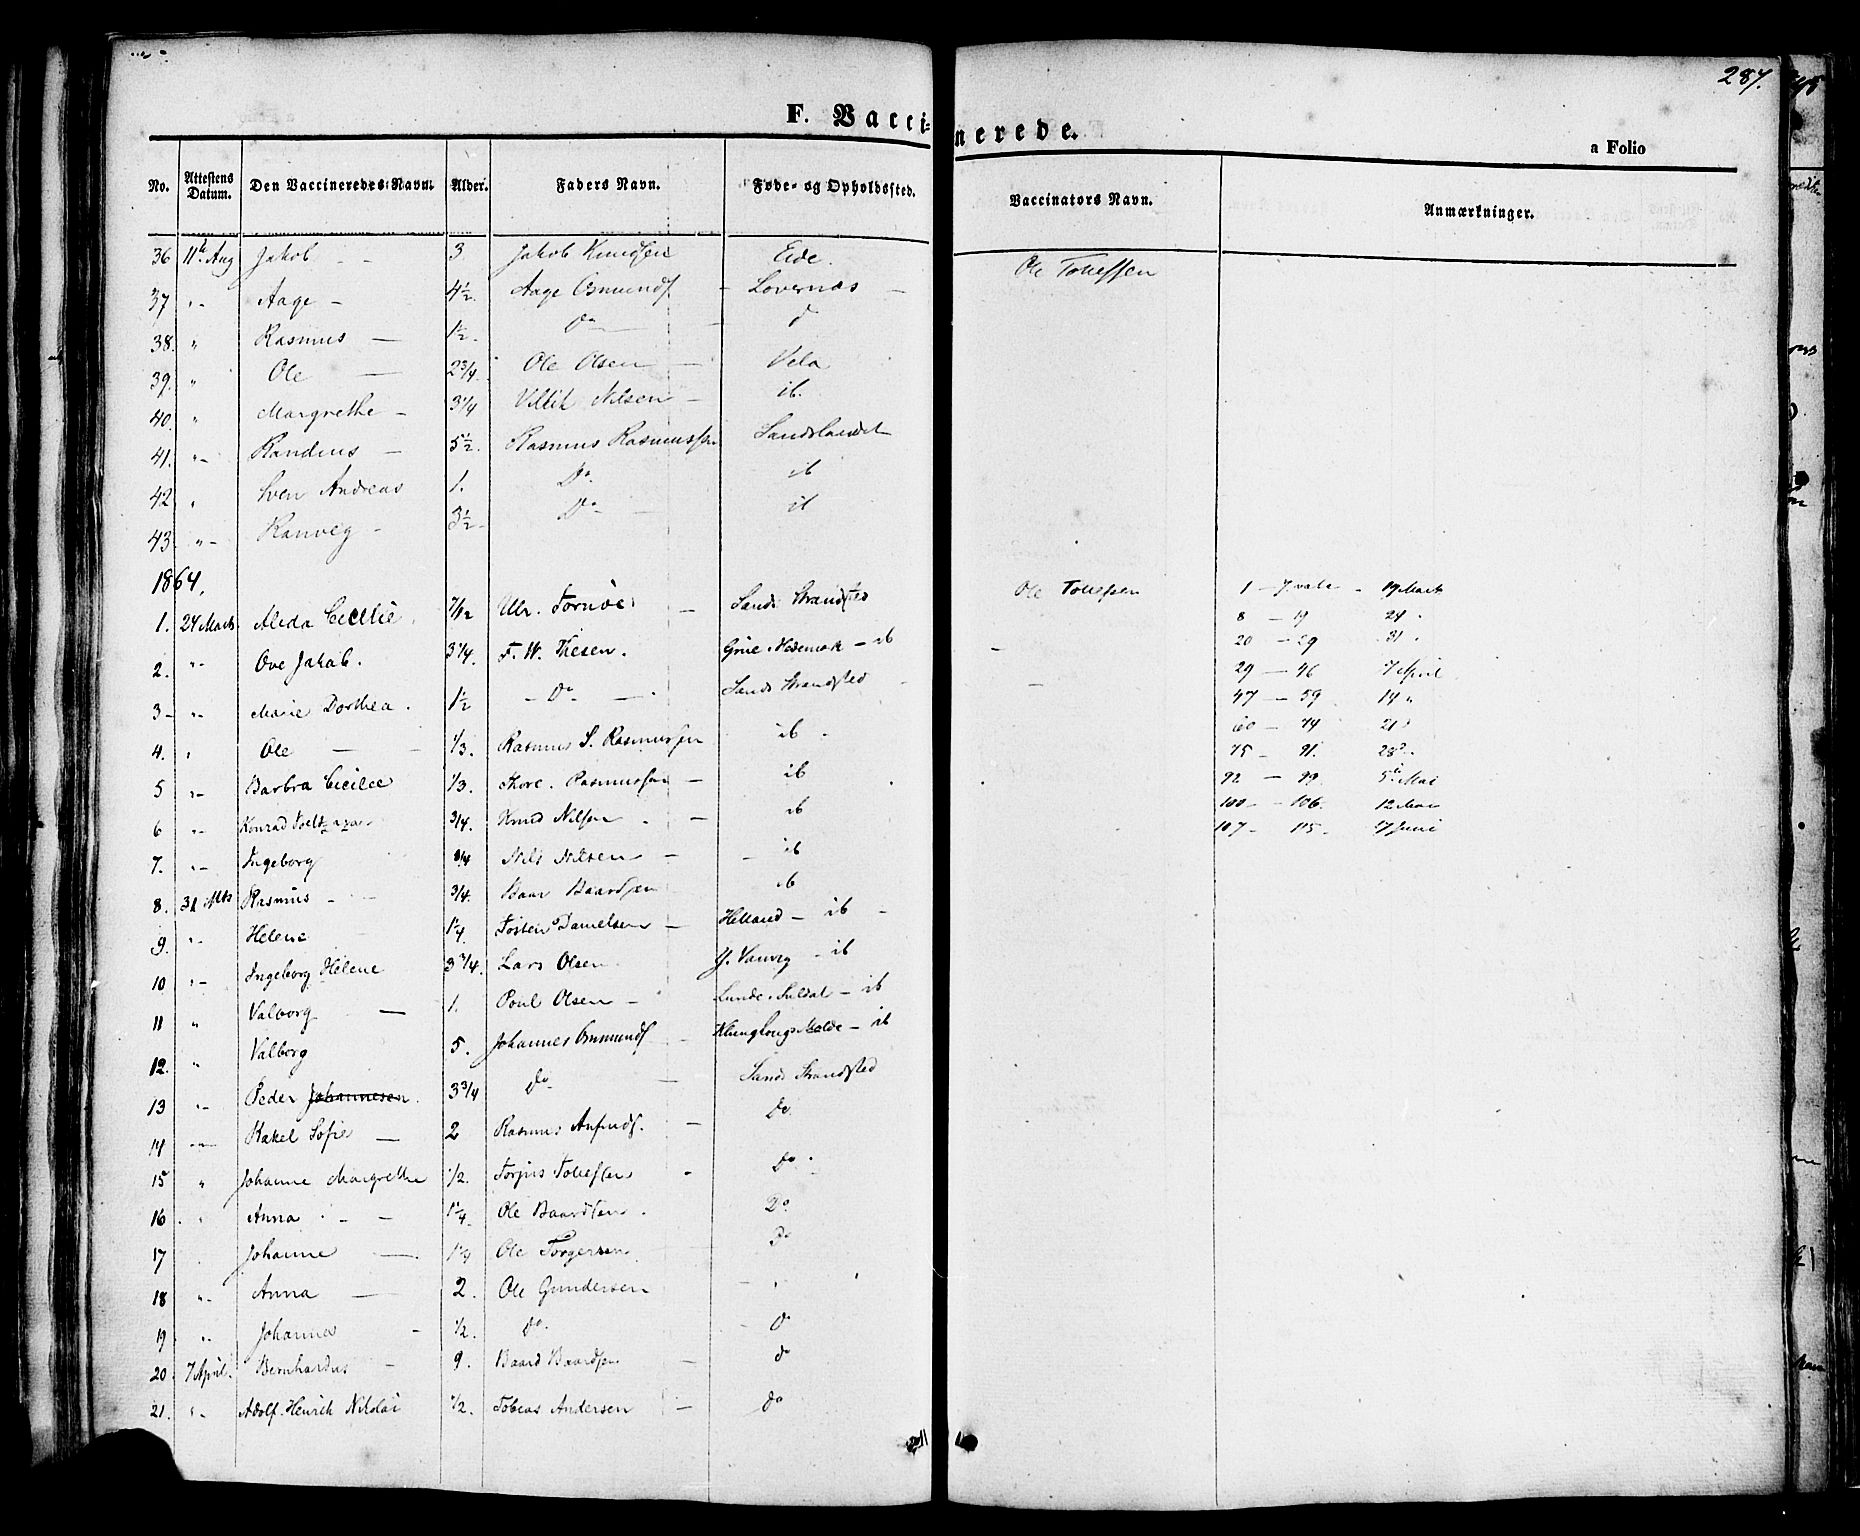 287.
F. Vaccinerede.
a Folio
No. Attestens Datum. Den Vaccineredes Navn. Alder. Faders Navn. Føde- og Opholdssted. Vaccinators Navn. Anmærkninger.
36 11te Aug Jakob - - 3 Jakob Knudsen Eide. Ole Tollefsen
37 "- Aage - 4½. Aage Osmunds. - Lovernæs -
38. " Rasmus - 1½. Do - d
39. " Ole - 2¾. Ole Olsen - Vela
40. " Margrethe - 3¼ Nilsen - ib.
41. "- Randeus - 5½. Rasmus Rasmussen Sandslandet
42 " Sven Andreas 1. Do. ib
43. "- Ranveg - 3½. Do - ib
1864.
1. 24 Marts Alida Cecilie. 7/12 Ulr. Tornøe - Sands Strandsted Ole Tollefsen 1 - 7 vacc. - 19 Marts
2. "- Ove Jakob. 3¼. F. W. Thesen. Grue i Hedemark - ib - 8 - 19 24 "
3 - "- Marie Dorthea. 1½ - Do - Sands Strandsted - 20 - 29 31 "
4. " Ole - 1/3. Rasmus S. Rasmussen ib - 29 - 46 7 April
5 "- Barbra Cecilie 1/3. Thore. Rasmussen - ib 47 - 59 14 "
6 "- Konrad ¾. Knud Nilsen. - ib 60 - 74 21
7. "- Ingeborg ¾ Nils Nilsen - - ib 75 - 91. 28
8. 31 Mts Rasmus - ¾. Baar Baardsen ib 92 - 99. 5te Mai
9. "- Helene 1¼. Tosten Danielsen - Helland - ib - 100 - - 106. 12 Mai
10 "- Ingeborg Helene 3¾. Lars Olsen Y. Vanvig - ib 107 - 115. 17 Juni
11 " Valborg - 1. Poul Olsen - Lunde i Suldal - ib
12. " Valborg 5. Johannes Osmunds - - ib
13 "- Peder Johannesen. 3¾ Do - Sands Strandsted
14 "- Rakel Sofie - 2 Rasmus - Do.
15 " Johanne Margrethe ½. Torjus Tollefsen - Do
16 " Anna - - 1¼. Ole Baardsen. Do
17 Johanne - 1¼ Ole Torgersen Do
18 "- Anna - 2. Ole Gundersen - "
19 "- Johanna - ½. Do. - D
20 7 April. Bernhardus - 9. Baard Baardsen - d
21. "- Adolf. Henrik Nikolai ½. Tobias Andersen - do